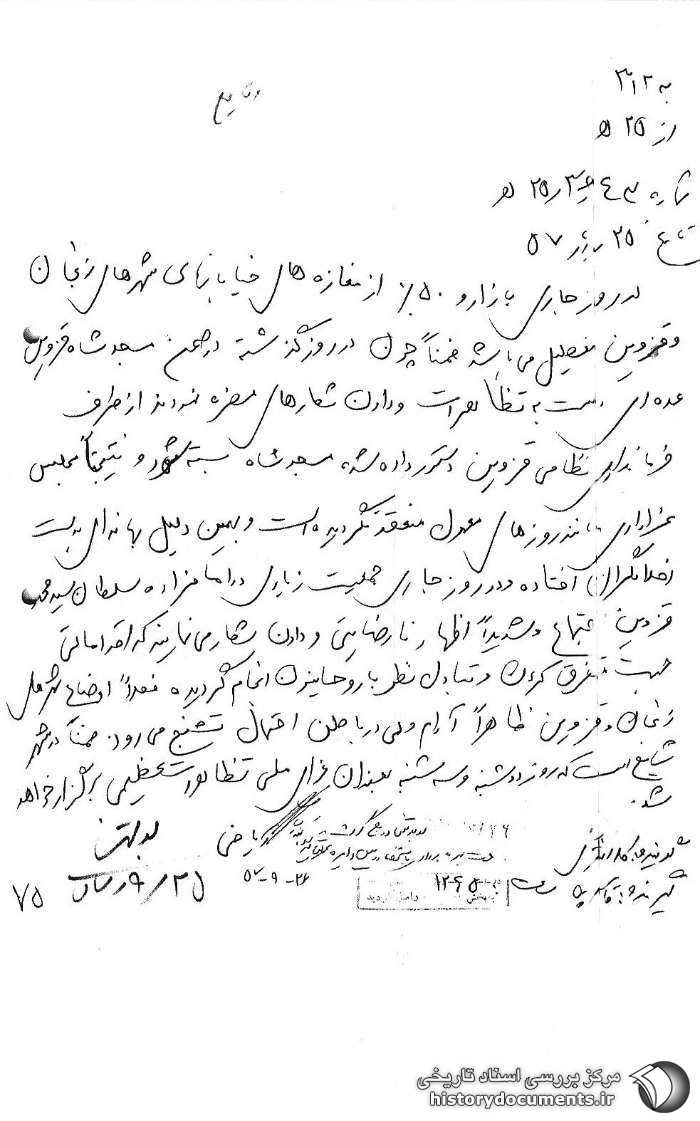 وقایع
به ۳۱۲
از ۲۵ ه
شماره
تاریخ ۲۵ ر ۹ ر ۵۷
در روز جاری بازار و ۵۰٪ از مغازه های خیابانهای شهرهای زنجان
و قزوین تعطیل می باشد ضمناً چون در روز گذشته در صحن مسجد شاه قزوین
عده ای دست به تظاهرات و دادن شعارهای مضره نمودند از طرف
فرمانداری نظامی قزوین دستور داده شد مسجد شاه بسته شود و نتیجتاً مجلس
عزاداری مانند روزهای معمول منعقد نگردیده است و بهمین دلیل بهانه ای بدست
اخلالگران افتاده و در روز جاری جمعیت زیادی در امامزاده سلطان سید محمد
قزوین اجتماع و شدیداً اظهار نارضایتی و دادن شعار می نمایند که اقداماتی
جهت متفرق کردن و تبادل نظر با روحانیون انجام گردیده فعلاً اوضاع شهرهای
زنجان و قزوین ظاهراً آرام ولی در باطن احتمال تشنج می رود. ضمناً در شهر
شایع است که روز دوشنبه و سه شنبه بعنوان عزای ملی تظاهرات عظیمی برگزار خواهد
شد.
گوینده:
گیرنده:
ساعت ۱۲۰۶۵
ریاضی
۲۶-۹-۵۷
۲۵/۹
۷۵
مرکز بررسی اسناد تاریخی
historydocuments.ir